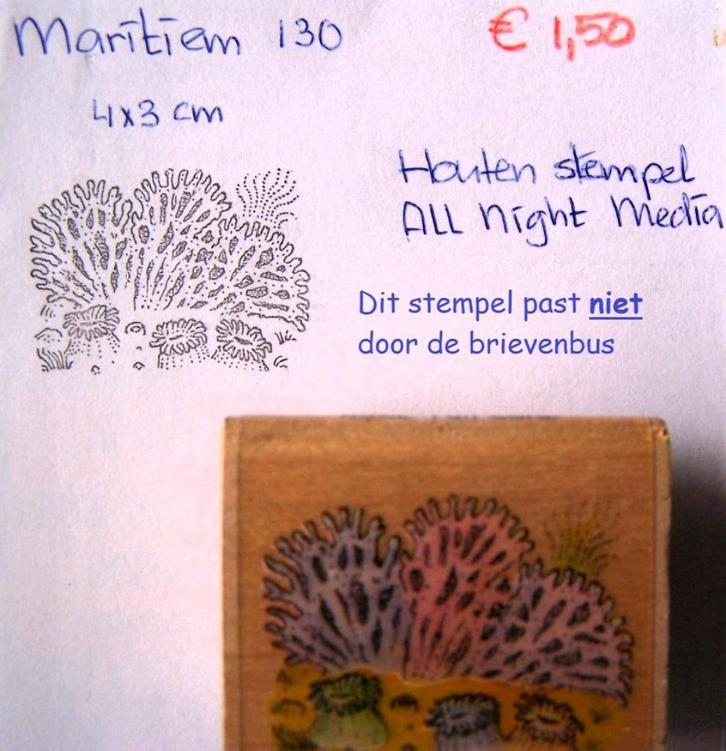 Maritiem 130
€ 1,50
4x3 cm
Houten stempel
All Night Media
Dit stempel past niet
door de brievenbus